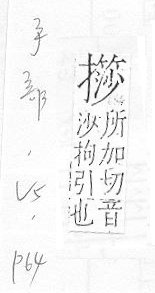 手部.V5.p64
所加切音
沙拘引也